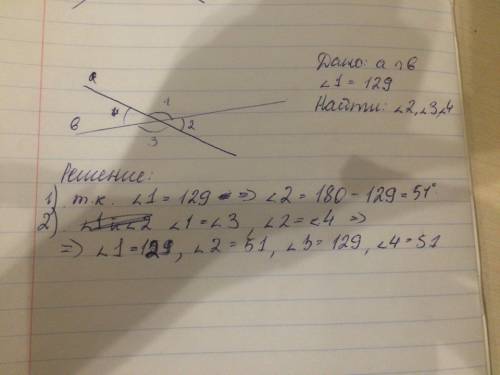 Дано: a ∩ b
∠1 = 129
Найти: ∠2,∠3,∠4
a
4
1
b
2
3
Решение:
1) т.к. ∠1 = 129 => ∠2 = 180 - 129 = 51°
2) ∠1 = ∠3, ∠2 = ∠4 =>
=> ∠1 = 129, ∠2 = 51, ∠3 = 129, ∠4 = 51